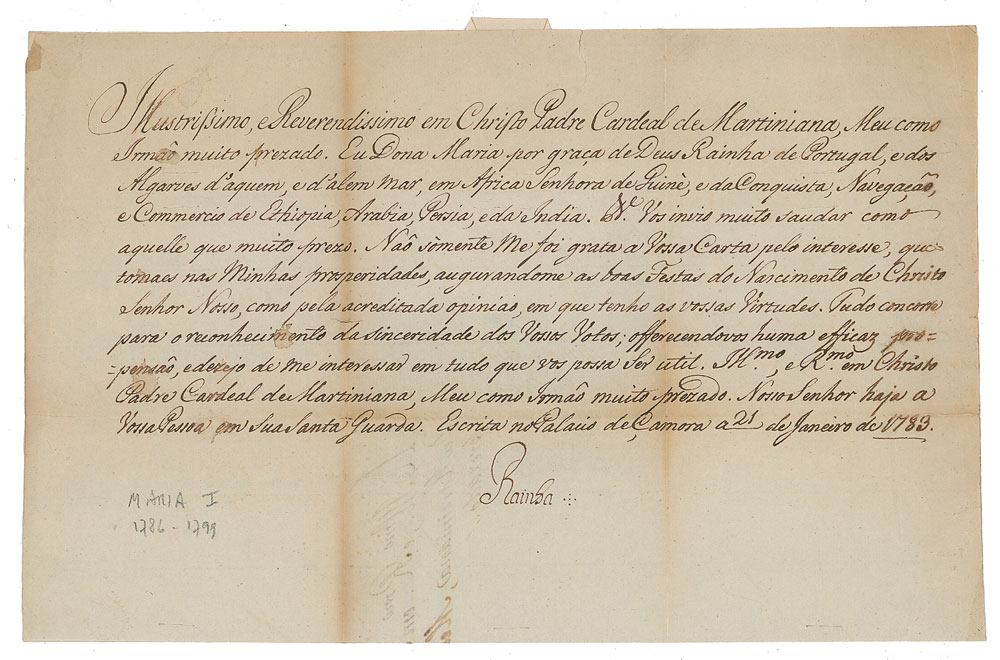 Illustrißimo, e Reverendissimo em Christo Padre Cardeal de Martiniana, Meu como
Irmaõ muito prezado. Eu Dona Maria por graça de Deus Rainha de Portugal, e dos
Algarves d'aquem, e d'alem mar, em Africa Senhora de Guinè, e da Conquista, Navegação,
e Commercio de Ethiopia, Arabia, Persia, e da India. &c. Vos invio muito saudar como
aquelle que muito prezo. Naõ sòmente Me foi grata a Vossa Carta pelo interesse, que
tomaes nas Minhas prosperidades, augurandome as boas Festas do Nascimento de Christo
Senhor Nosso, como pela acreditada opiniaõ, em que tenho as vossas Virtudes. Tudo concorre
para o reconhecimento da sinceridade dos Vossos Votos; offerecendovos huma efficaz pro-
-pensaõ, e dezejo de me interessar em tudo que vos possa Ser util. Ill.mo, e R.mo em Christo
Padre Cardeal de Martiniana, Meu como Irmaõ muito prezado. Nosso Senhor haja a
Vossa Pessoa em Sua Santa Guarda. Escrita no Palacio de Çamora a 21 de Janeiro de 1783.
Rainha
MARIA I
1786 - 1799